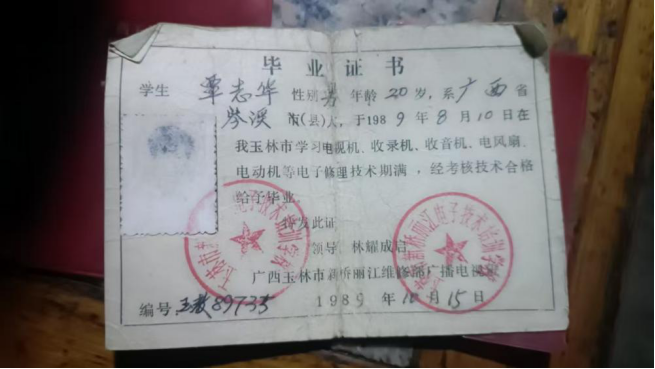 毕业证书
学生 覃志华 性别男 年龄20岁,系广西省
岑溪市(县)人,于1989年8月10日在
我玉林市学习电视机、收录机、收音机、电风扇、
电动机等电子修理技术期满,经考核技术合格
给予毕业。
特发此证
领导 林耀成启
广西玉林市 丽江维修部广播电视
编号 89735 1989年10月15日